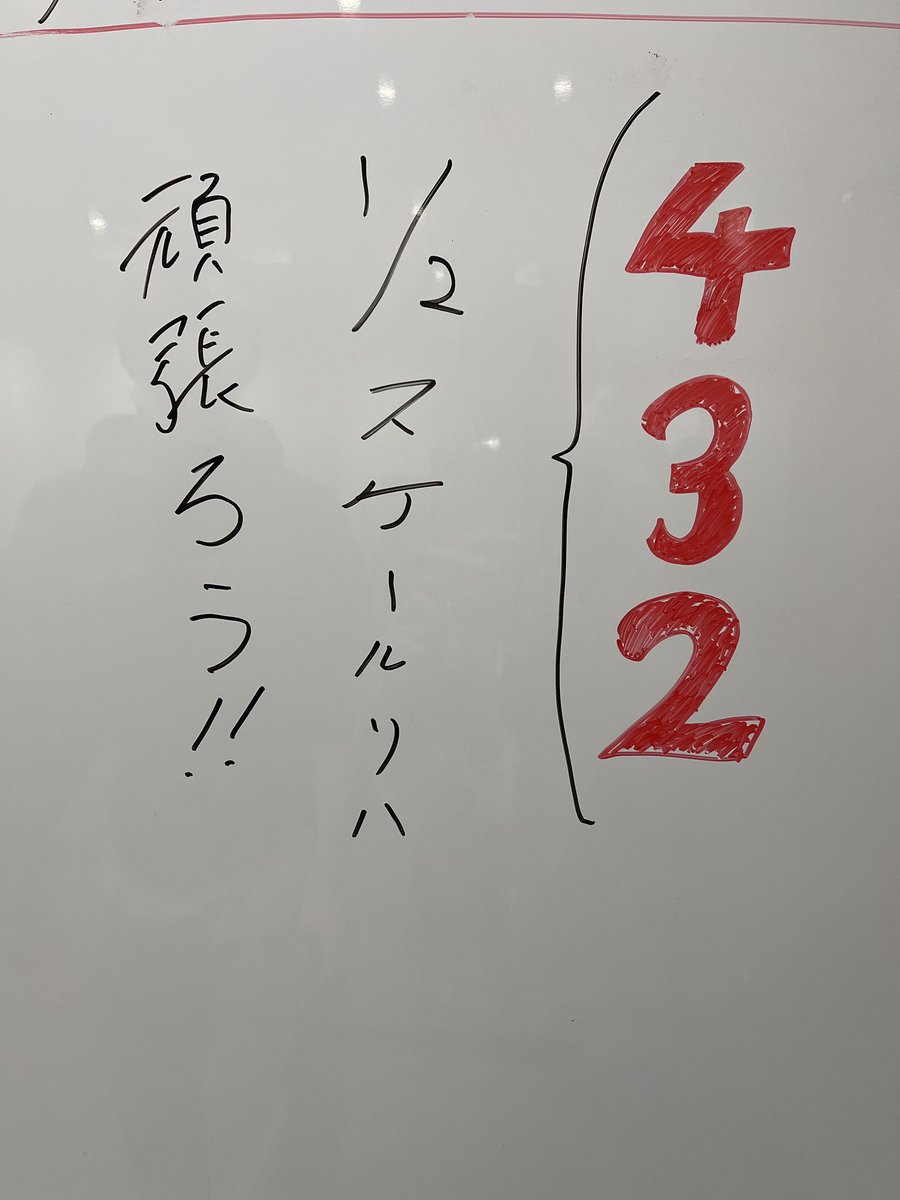 432
1/2スケールリハ
頑張ろう!!